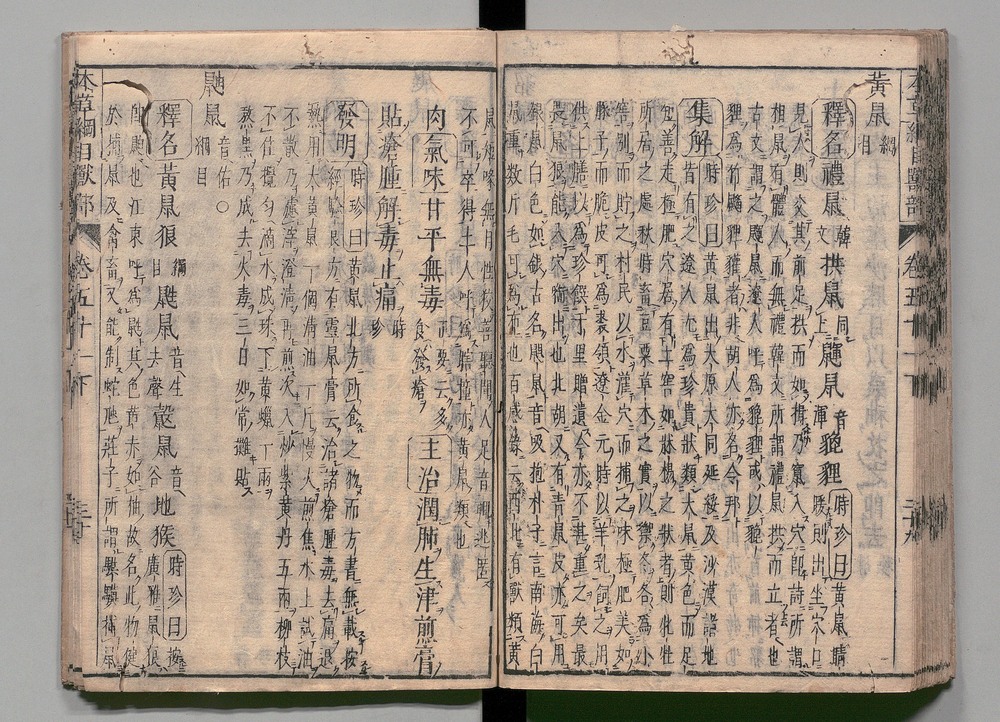 本草綱目獸部 卷五十一下
黃鼠 綱目
釋名 禮鼠 韓文 拱鼠 同上 鼲鼠 音渾 貔貍 時珍曰 黃鼠晴暖則出坐穴口
見人則交其前足拱而如揖乃竄入穴即詩所謂
相鼠有體人而無禮韓文所謂禮鼠拱而立者也
古文謂之鼲鼠遼人呼為貔貍或以貔
貍為竹䶉貍獾者非胡人亦名令邦
集解 時珍曰 黃鼠出太原大同延綏及沙漠諸地
皆有之遼人尤為珍貴狀類大鼠黃色而足
短善走極肥穴居有土窖如牀榻之狀者則牝牡
所居之處秋時畜豆粟草木之實以禦冬各為小
窖別而貯之村民以水灌穴而捕之味極肥美如
豚子而脆皮可為裘領遼金元時以羊乳飼之用
供上膳以為珍饌千里贈遺今亦不甚重之矣最
畏鼠狼能入穴銜出也北胡又有青鼠皮亦
銀鼠白色如銀古名䶄鼠音吸抱朴子言南海白
鼠重數斤毛可為布也百感錄云西北有獸類黃
鼠短喙無目性狡善聽聞人足音輒逃匿
不可卒得土人呼為瞎撞亦黃鼠類也
肉 氣味甘平無毒 正要云多食發瘡 主治潤肺生津煎膏
貼瘡腫解毒止痛 時珍
發明 時珍曰 黃鼠北方所食之物而方書無載按
經驗良方有靈鼠膏云治諸瘡腫毒去痛退
熱用大黃鼠一個清油一斤慢火煎焦水上試油
不散乃濾滓澄清再煎次入炒紫黃丹五兩柳枝
不住攪勻滴水成珠下黃蠟一兩
熬黑乃成去火毒三日如常攤貼
鼬鼠 音佑○綱目
釋名 黃鼠狼 綱目 鼪鼠 音生去聲 䶂鼠 音谷 地猴 時珍曰 按廣雅鼠狼
即鼬也江東呼為鼪其色黃赤如柚故名此物健
於捕鼠及禽畜又能制蛇虺莊子所謂騏驥捕鼠
本草綱目獸部 卷五十一下